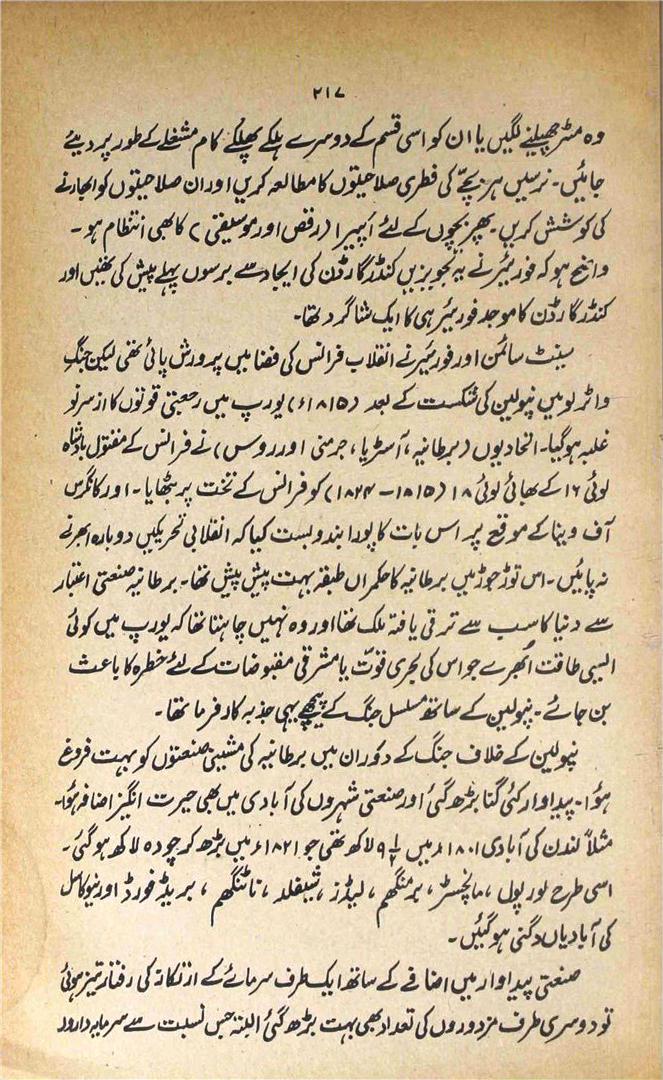 ۲۱۷
وہ مٹر چھیلنے لگیں یا ان کو اسی قسم کے دوسرے ہلکے پھلکے کام مشغلے کے طور پر دیئے
جائیں۔ نرسیں ہر بچّے کی فطری صلاحیتوں کا مطالعہ کریں اور ان صلاحیتوں کو ابھارنے
کی کوشش کریں۔ پھر بچوں کے لئے اَپیرا (رقص اور موسیقی) کا بھی انتظام ہو۔
واضح ہو کہ فورئیر نے یہ تجویزیں کنڈر گارڈن کی ایجاد سے برسوں پہلے پیش کی تھیں اور
کنڈر گارڈن کا موجد فورئیر ہی کا ایک شاگرد تھا۔
سینٹ سائمن اور فورئیر نے انقلاب فرانس کی فضا میں پرورش پائی تھی لیکن جنگِ
واٹر لو میں نپولین کی شکست کے بعد (۱۸۱۵ء) یورپ میں رجعتی قوتوں کا از سرنو
غلبہ ہو گیا۔ اتحادیوں (برطانیہ، آسٹریا، جرمنی اور روس) نے فرانس کے مقتول بادشاہ
لوئی ۱۶ کے بھائی لوئی ۱۸ (۱۸۱۵ – ۱۸۲۴) کو فرانس کے تخت پر بٹھایا۔ اور کانگرس
آف وینا کے موقع پر اس بات کا پورا بندوبست کیا کہ انقلابی تحریکیں دوبارہ ابھرنے
نہ پائیں۔ اس توڑ جوڑ میں برطانیہ کا حکمراں طبقہ بہت پیش پیش تھا۔ برطانیہ صنعتی اعتبار
سے دنیا کا سب سے ترقی یافتہ ملک تھا اور وہ نہیں چاہتا تھا کہ یورپ میں کوئی
ایسی طاقت اُبھرے جو اس کی بحری قوّت یا مشرقی مقبوضات کے لئے خطرہ کا باعث
بن جائے۔ نپولین کے ساتھ مسلسل جنگ کے پیچھے یہی جذبہ کارفرما تھا۔
نپولین کے خلاف جنگ کے دَوران میں برطانیہ کی مشینی صنعتوں کو بہت فروغ
ہوا۔ پیداوار کئی گنا بڑھ گئی اور صنعتی شہروں کی آبادی میں بھی حیرت انگیز اضافہ ہوا۔
مثلاً لندن کی آبادی ۱۸۰۱ء میں ½۹ لاکھ تھی جو ۱۸۲۱ء میں بڑھ کر چودہ لاکھ ہو گئی۔
اسی طرح لورپول، مانچسٹر، برمنگھم، لیڈز، شیفلڈ، ناٹنگھم، بریڈ فورڈ اور نیو کاسل
کی آبادیاں دگنی ہو گئیں۔
صنعتی پیداوار میں اضافے کے ساتھ ایک طرف سرمائے کے ارتکاز کی رفتار تیز ہوئی
تو دوسری طرف مزدوروں کی تعداد بھی بہت بڑھ گئی البتہ جس نسبت سے سرمایہ داروں